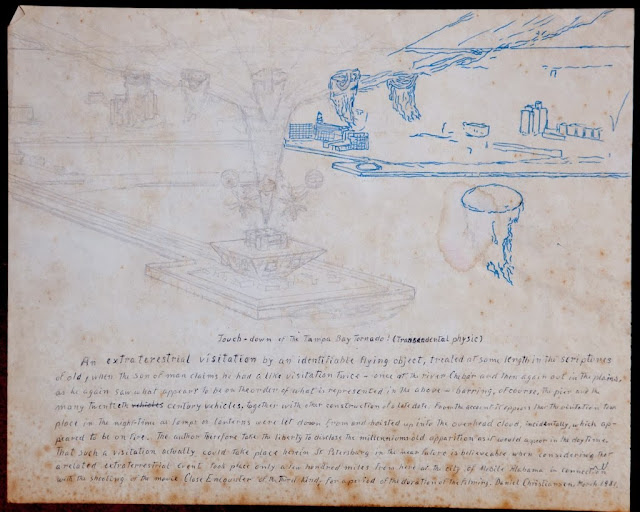 Touch-down of the Tampa Bay Tornado! (Transendental physic)
An extraterestrial visitation by an identifiable flying object, treated at some length in the scriptures
of old, when the son of man claims he had a like visitation twice - once at the river Chebar and then again out in the plains,
as he again saw what appears to be on the order of what is represented in the above - barring, of course, the pier and the
many twentieth vehicles century vehicles, together with other construction of a late date. From the account it appears that the visitation took
place in the nighttime as lamps or lanterns were let down from and hoisted up into the overhead cloud, incidentally, which ap-
peared to be on fire. The author therefore takes the liberty to disclose the millenniums old apparition as it would appear in the daytime.
That such a visitation actually could take place here in St Petersburg in the near future is believeable when considering that
a related extraterrestrial event took place only a few hundred miles from here at the city of Mobile Alabama in connection
with the shooting of the movie Close Encounter of the Third Kind, for a period of the duration of the filming. Daniel Christiansen, March 1981.